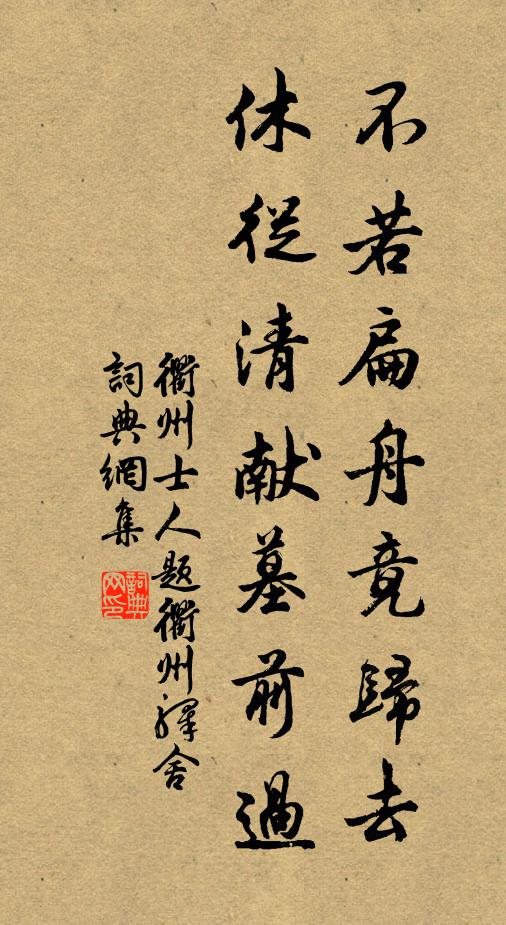 不若扁舟竟歸去
休從清献墓前過
衢州士人題衢州驛舍
詞典網集
詞典網印